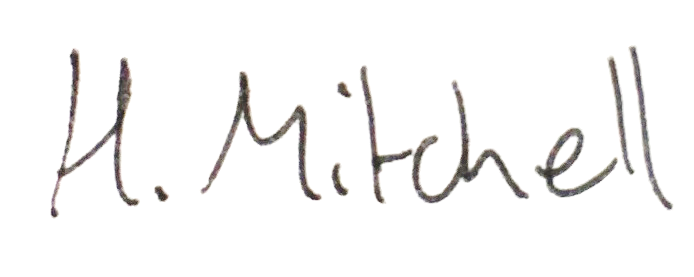 H. Mitchell